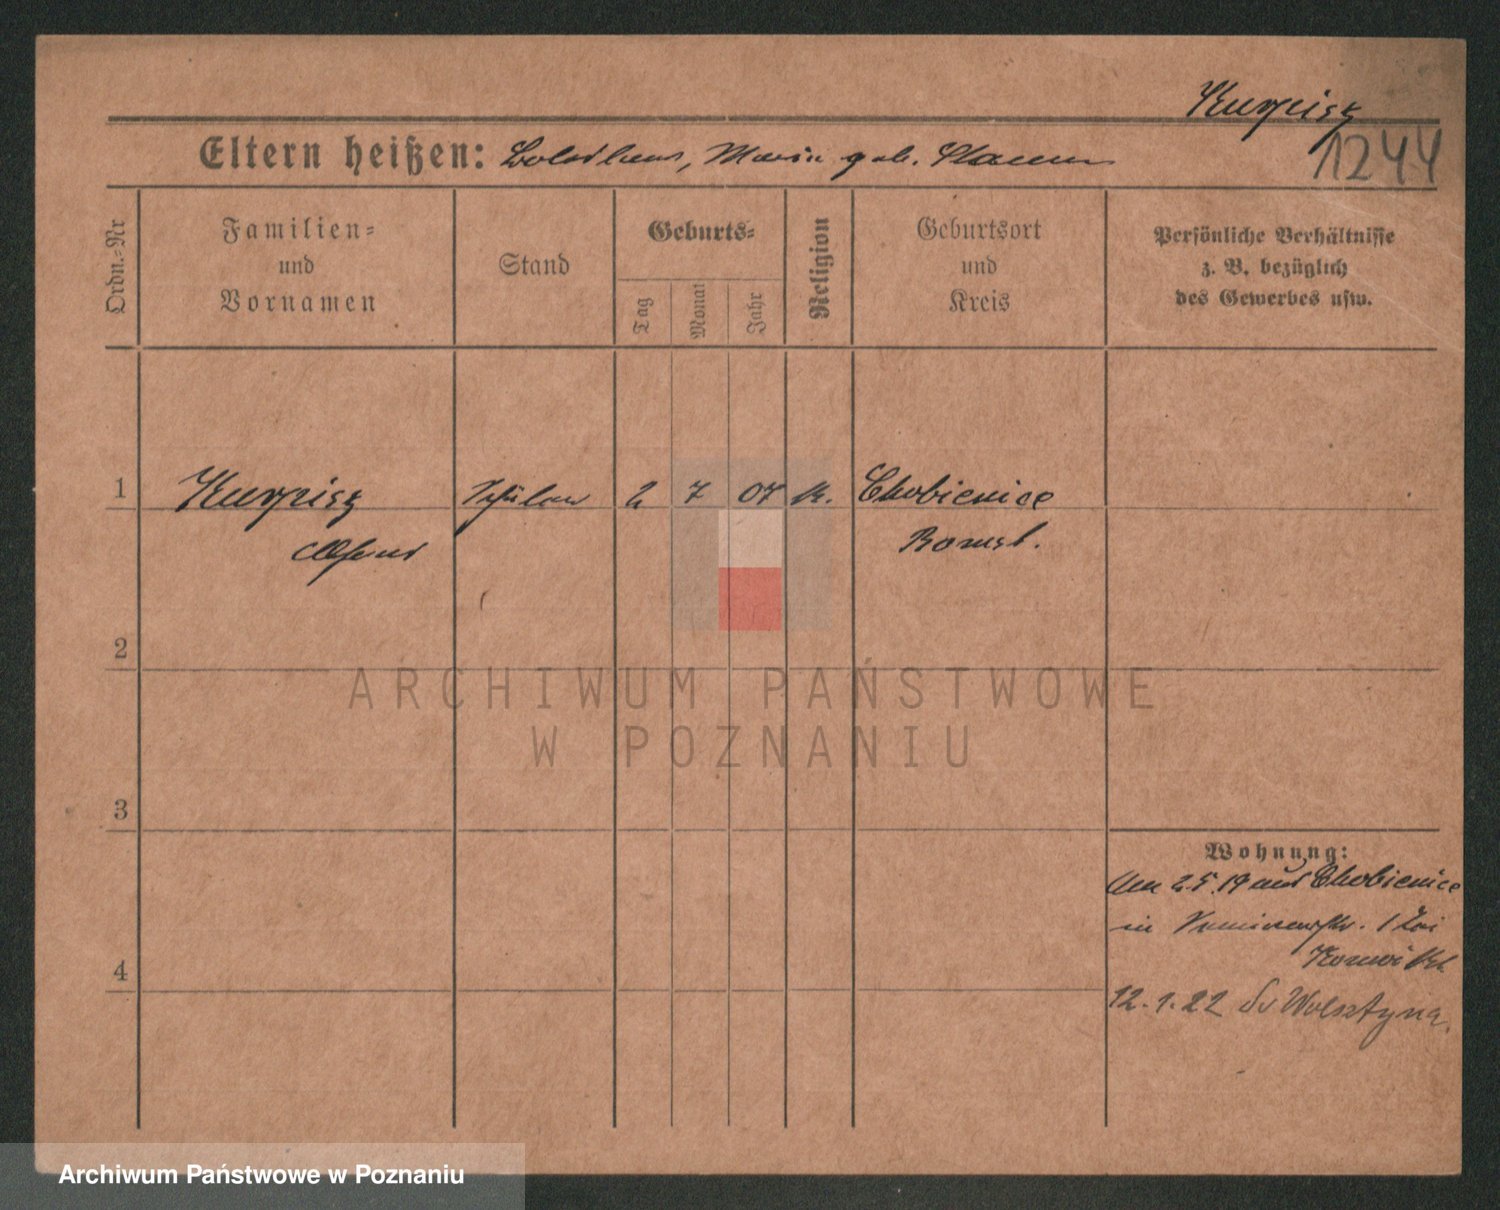 Kurpisz
1244
Eltern heißen: Maria geb.
Ordn.-Nr
Familien-
und
Vornamen
Stand
Geburts-
Tag
Monat
Jahr
Religion
Geburtsort
und
Kreis
Persönliche Verhältnisse
z. B. bezüglich
des Gewerbes usw.
1 Kurpisz Schüler 2 7 07 k. Chobienice
Bomst.
2
ARCHIWUM PAŃSTWOWE
W POZNANIU
3
Wohnung:
2.5.19 aus Chobienice
in 1 bei
4
12.1.22 do Wolsztyna.
Archiwum Państwowe w Poznaniu